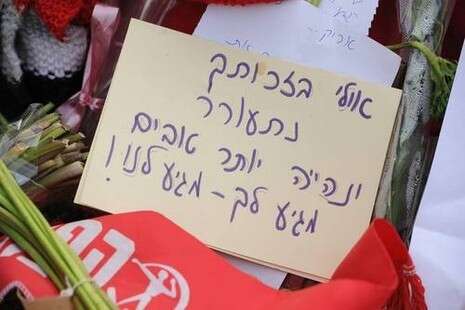 אולי בזכותך
נתעורר
ונהייה יותר טובים
מגיע לך - מגיע לנו!